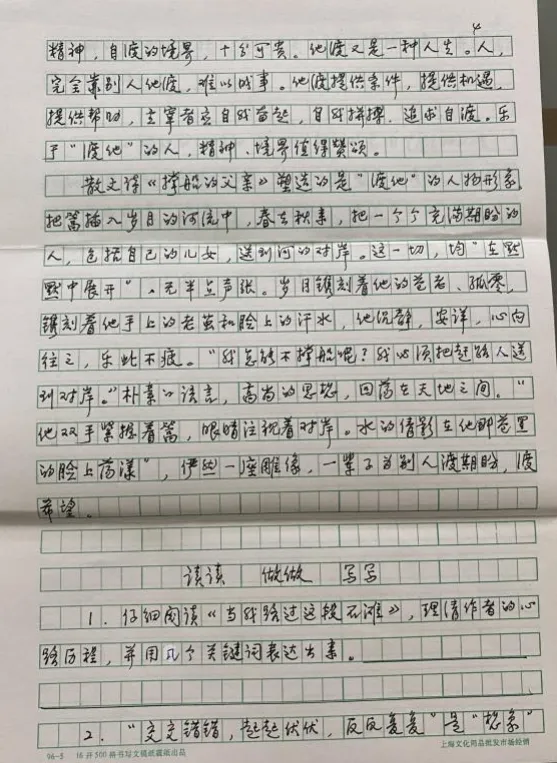 4
精神，自渡的境界，十分可贵。他渡又是一种人生。人，
完全靠别人他渡，难以成事。他渡提供条件，提供机遇，
提供帮助，主宰者立自我奋起，自我拼搏，追求自渡。乐
于“渡他”的人，精神、境界值得赞颂。
散文诗《撑船的父亲》塑造的是“渡他”的人物形象，
把篙插入岁月的河流中，春去秋来，把一个个充满期盼的
人，包括自己的儿女，送到河的对岸。这一切，均“在默
默中展开”，无半点声张。岁月镌刻着他的苍老、孤零，
镌刻着他手上的老茧和脸上的汗水，他沉静，安详，心向
往之，乐此不疲。“我怎能不撑船呢？我必须把赶路人送
到对岸。”朴素的语言，高尚的思想，回荡在天地之间。“
他双手紧握着篙，眼睛注视着对岸。水的倩影在他那苍黑
的脸上荡漾”，俨然一座雕像，一辈子为别人渡期盼，渡
希望。
读读 做做 写写
1．仔细阅读《当我路过这段石滩》，理清作者的心
路历程，并用几个关键词表达出来。
2．“交交错错，起起伏伏，反反复复”是“想象”
96—5 16开500格书写文稿纸震纸出品
上海文化用品纸发市场经销